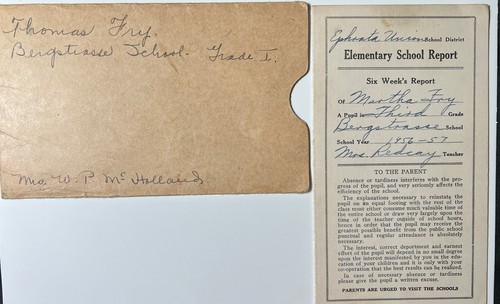 Thomas Fry.
Bergstrasse School - Grade I.
Mrs. W. P. McHolland
Ephrata Union School District
Elementary School Report
Six Week's Report
Of Martha Fry
A Pupil in Third Grade
Bergstrasse School
School Year 1956-57
Mrs. Redcay Teacher
TO THE PARENT
Absence or tardiness interferes with the pro-
gress of the pupil, and very seriously affects the
efficiency of the school.
The explanations necessary to reinstate the
pupil on an equal footing with the rest of the
class must either consume much valuable time of
the entire school or draw very largely upon the
time of the teacher outside of school hours,
hence in order that the pupil may receive the
greatest possible benefit from the public school
punctual and regular attendance is absolutely
necessary.
The interest, correct deportment and earnest
effort of the pupil will depend in no small degree
upon the interest manifested by you in the edu-
cation of your children and it is only with your
co-operation that the best results can be realized.
In case of necessary absence or tardiness
please give the pupil a written excuse.
PARENTS ARE URGED TO VISIT THE SCHOOLS